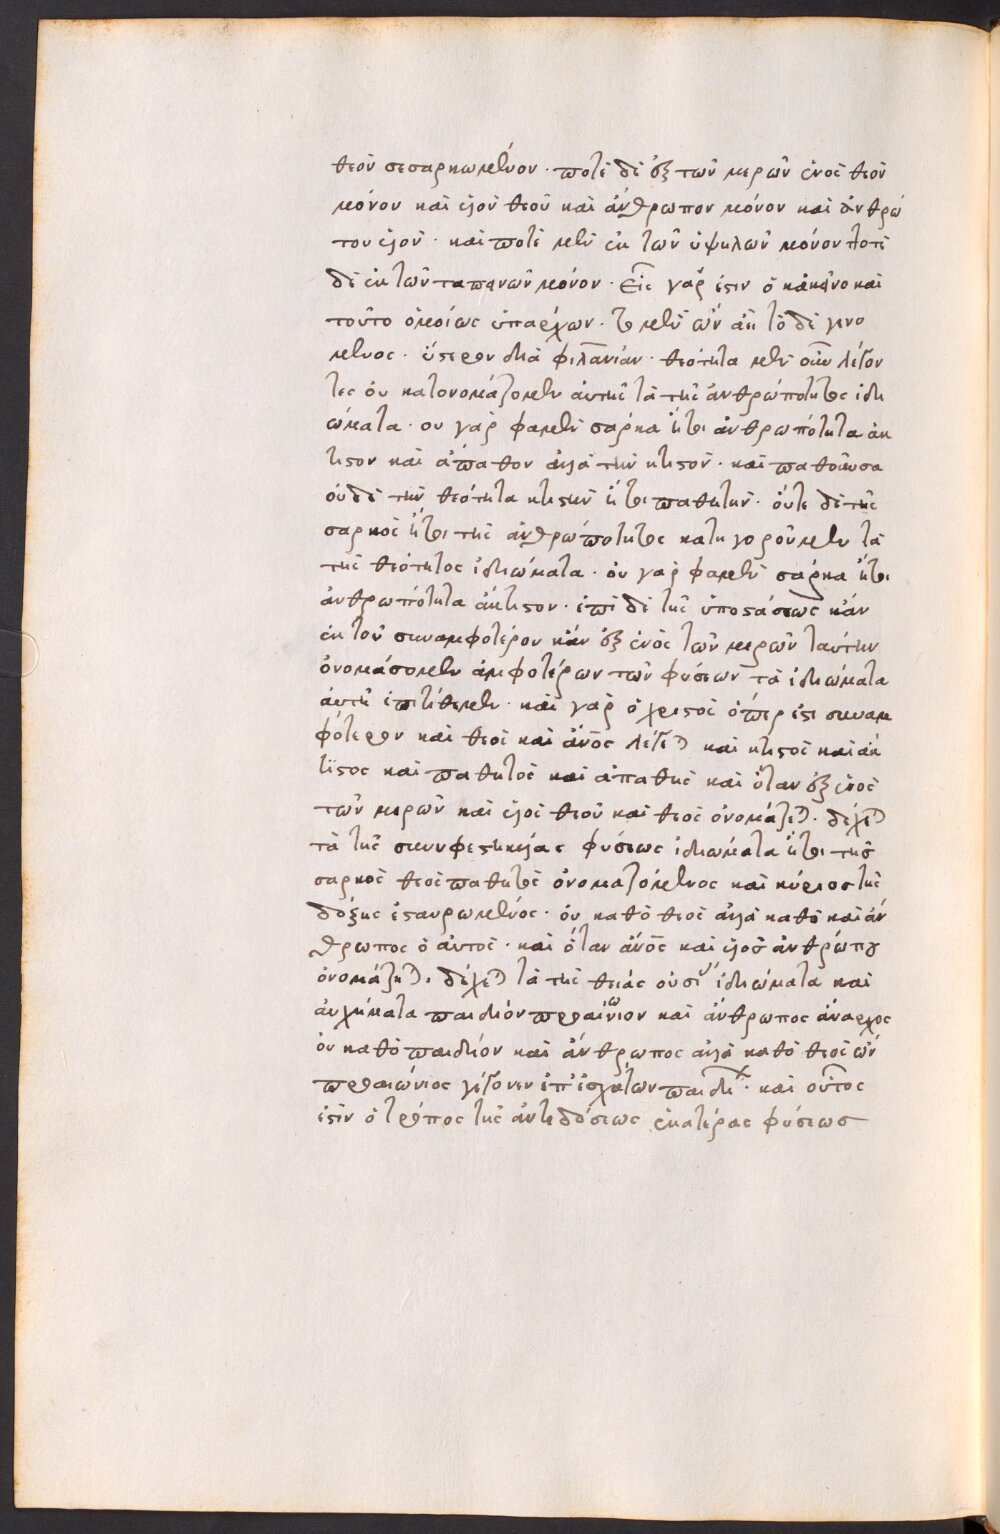 θεὸν σεσαρκωμένον · ποτὲ δὲ ἐξ τῶν μερῶν ἑνὸς θεὸν
μόνον καὶ υἱὸν θεοῦ καὶ ἄνθρωπον μόνον καὶ ἀνθρώ
που υἱόν · καὶ ποτὲ μὲν ἐκ τῶν ὑψηλῶν μόνον ποτὲ
δὲ ἐκ τῶν ταπεινῶν μόνον · Εἷς γάρ ἐστιν ὁ κἀκεῖνο καὶ
τοῦτο ὁμοίως ὑπάρχων · τὸ μὲν ὢν ἀεὶ τὸ δὲ γενό
μενος · ὕστερον διὰ φιλανίαν · θεότητα μὲν οὖν λέγον
τες οὐ κατονομάζομεν αὐτῆς τὰ τῆς ἀνθρωπότητος ἰδι
ώματα · οὐ γάρ φαμεν σάρκα ἤτοι ἀνθρωπότητα ἄκ
τιστον καὶ ἀπαθον ἀλλὰ τὴν κτιστόν · καὶ παθοῦσα
οὐδὲ τὴν θεότητα κτιστὴν ἤτοι παθητήν · οὔτε δὲ τῆς
σαρκὸς ἤτοι τῆς ἀνθρωπότητος κατηγοροῦμεν τὰ
τῆς θεότητος ἰδιώματα · οὐ γάρ φαμεν σάρκα ἤτοι
ἀνθρωπότητα ἄκτιστον · ἐπὶ δὲ τῆς ὑποστάσεως κἂν
ἐκ τοῦ συναμφοτέρου κἂν ἐξ ἑνὸς τῶν μερῶν ταύτην
ὀνομάσομεν ἀμφοτέρων τῶν φύσεων τὰ ἰδιώματα
αὐτῇ ἐπιτίθεμεν · καὶ γὰρ ὁ χριστὸς ὅπερ ἐστι συναμ
φότερον καὶ θεὸς καὶ ἄνος λέγεται καὶ κτιστὸς καὶ ἄκ
τιστος καὶ παθητὸς καὶ ἀπαθὴς καὶ ὅταν ἐξ ἑνὸς
τῶν μερῶν καὶ υἱὸς θεοῦ καὶ θεὸς ὀνομάζεται · δέχεται
τὰ τῆς συνυφεστηκυίας φύσεως ἰδιώματα ἤτοι τῆς
σαρκὸς θεὸς παθητὸς ὀνομαζόμενος καὶ κύριος τῆς
δόξης ἐσταυρωμένος · οὐ καθὸ θεὸς ἀλλὰ καθὸ καὶ ἄν
θρωπος ὁ αὐτὸς · καὶ ὅταν ἄνος καὶ υἱὸς ἀνθρώπου
ὀνομάζηται · δέχεται τὰ τῆς θείας οὐσίας ἰδιώματα καὶ
αὐχήματα παιδίον προαιώνιον καὶ ἄνθρωπος ἄναρχος
οὐ καθὸ παιδίον καὶ ἄνθρωπος ἀλλὰ καθὸ θεὸς ὢν
προαιώνιος γέγονεν ἐπ' ἐσχάτων παιδίον · καὶ οὗτος
ἐστὶν ὁ τρόπος τῆς ἀντιδόσεως ἑκατέρας φύσεως